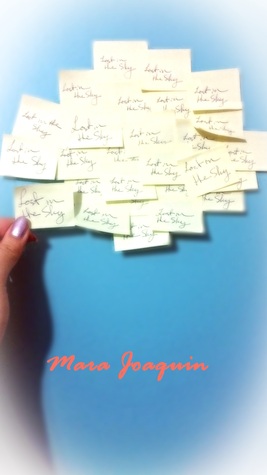 Lost in
the Sky
Lost in
the Sky
Lost in
the Sky
Lost in
the Sky
Lost in
Lost in
the Sky
Lost in the
Sky
Lost in
the Sky
Lost in
Lost in
the Sky
Lost in
the Sky
Lost in
the Sky
Lost in
the Sky
Lost in
the Sky
Lost in
the Sky
Lost in
the Sky
Lost in
the Sky
Lost in
the Sky
Mara Joaquin